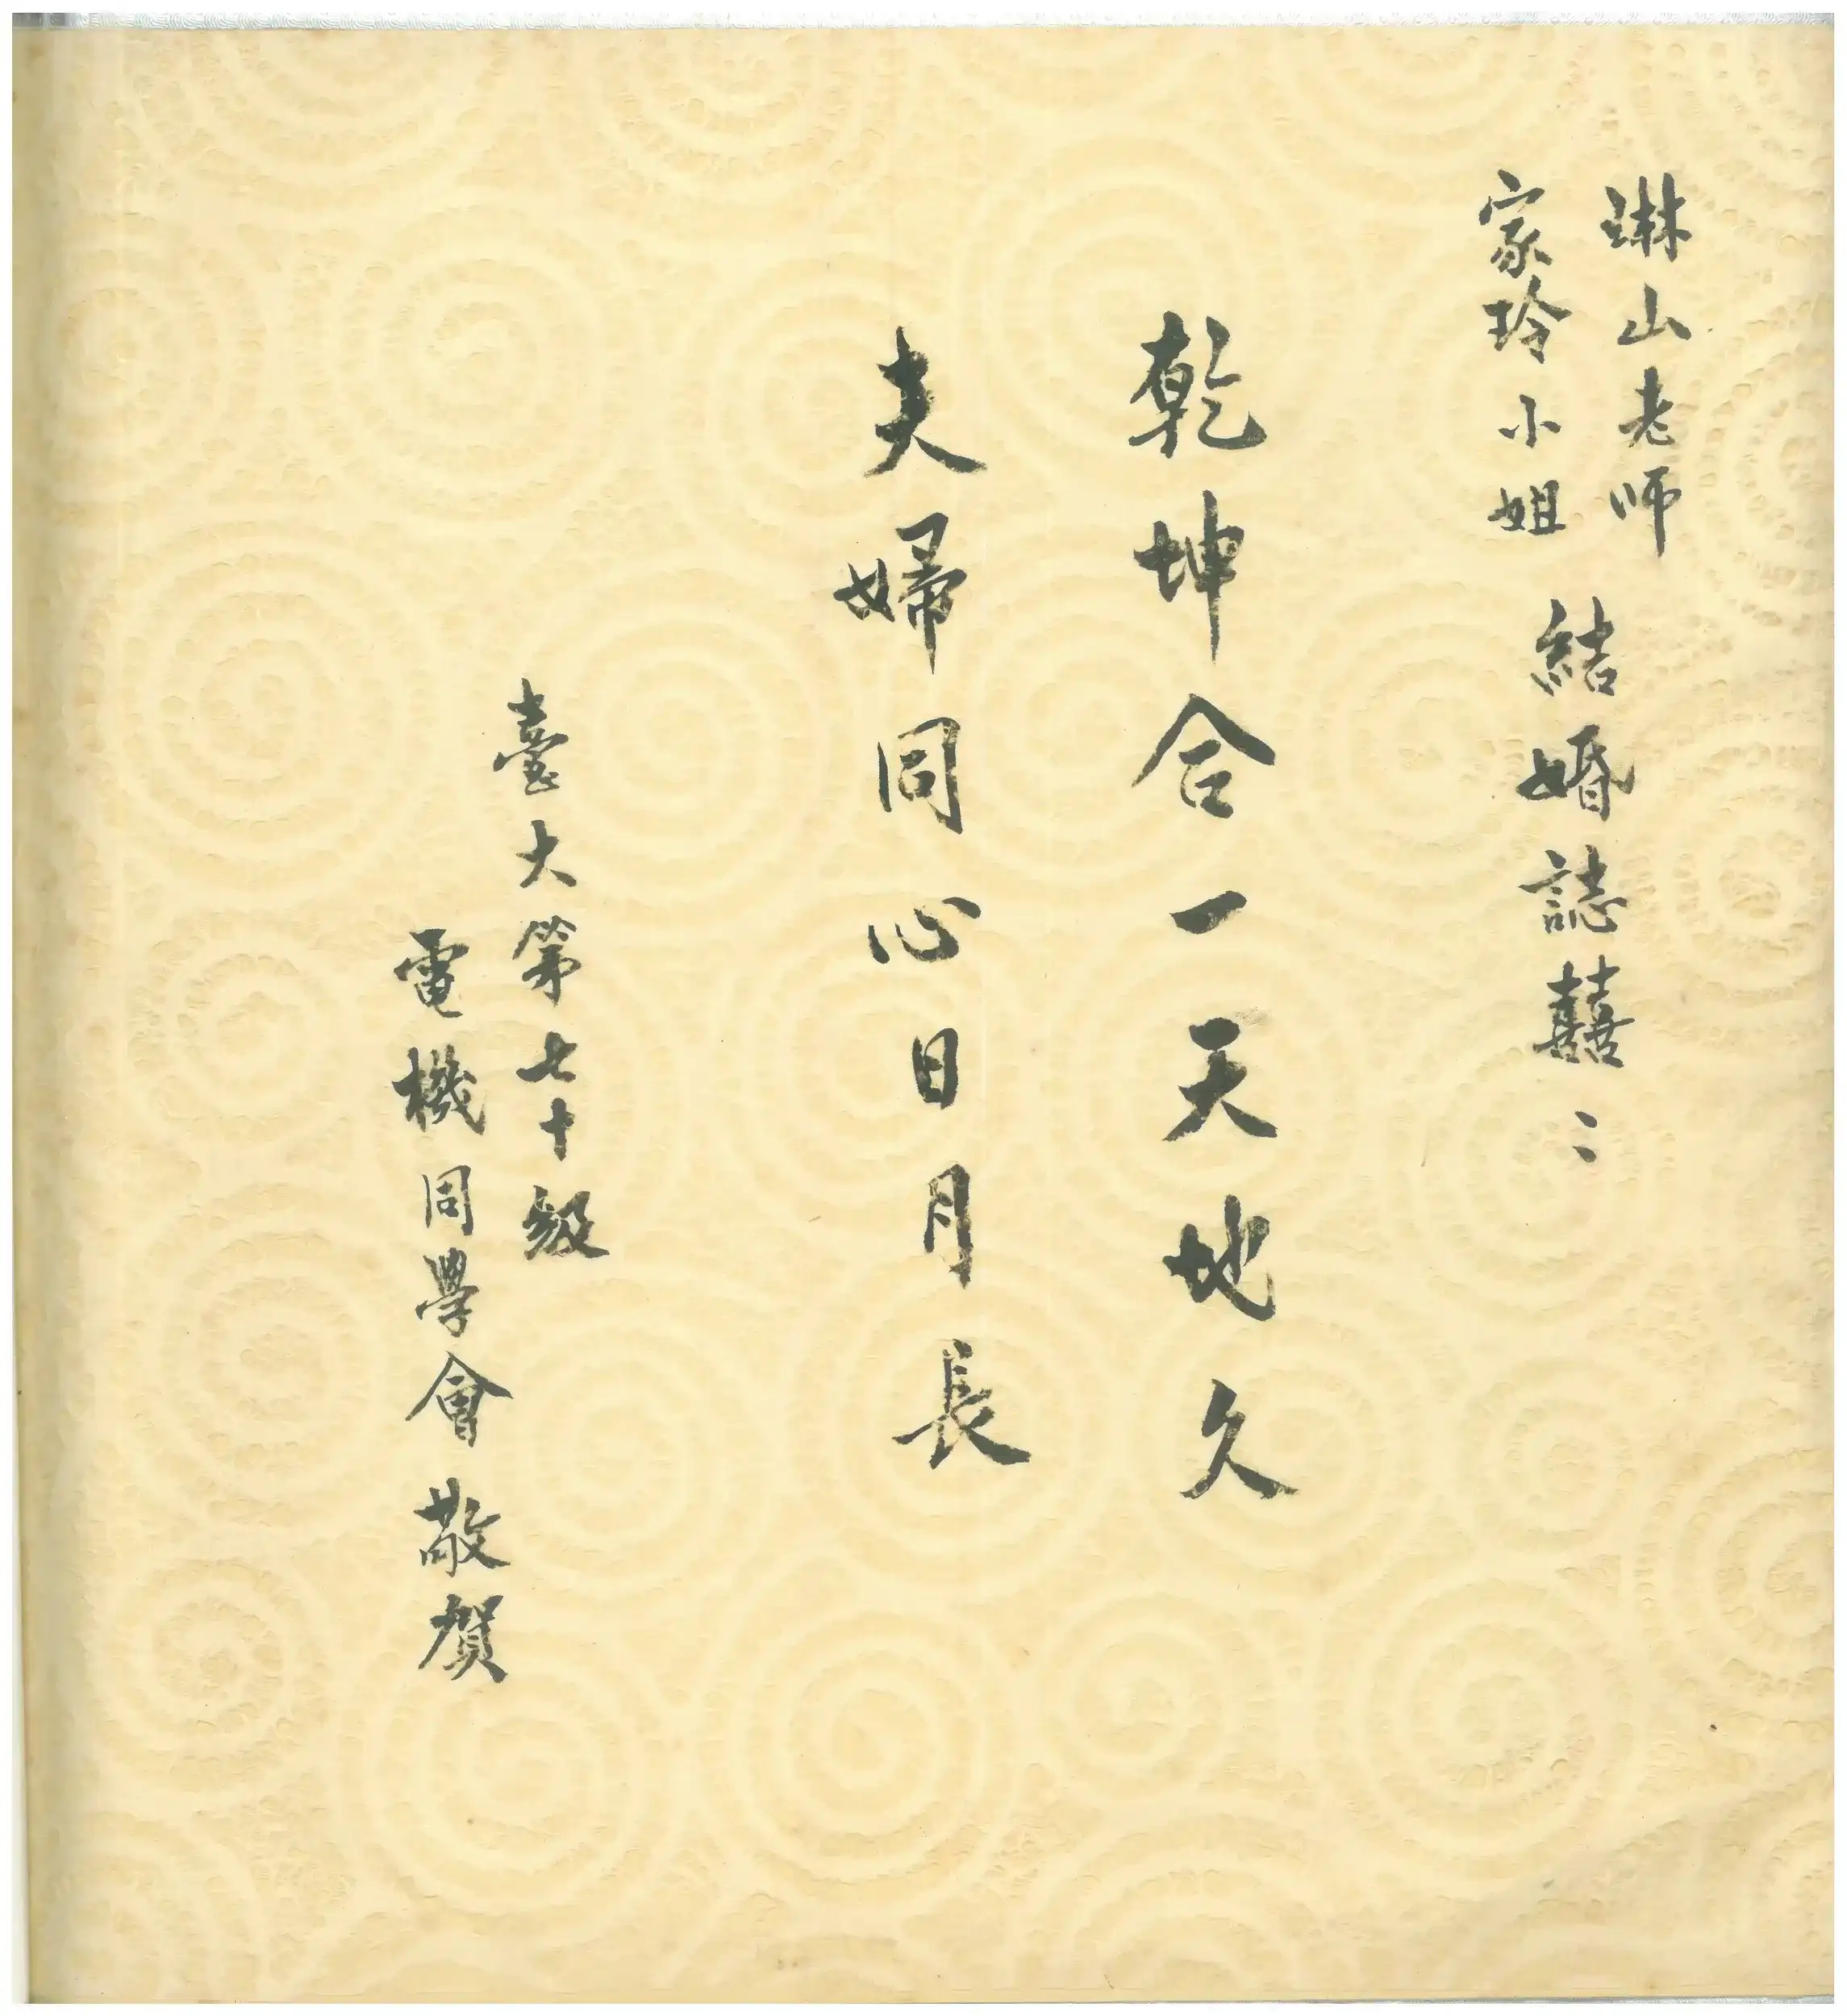 琳山老師
家玲小姐
結婚誌囍〻
乾坤合一天地久
夫婦同心日月長
臺大第七十級
電機同學會敬賀